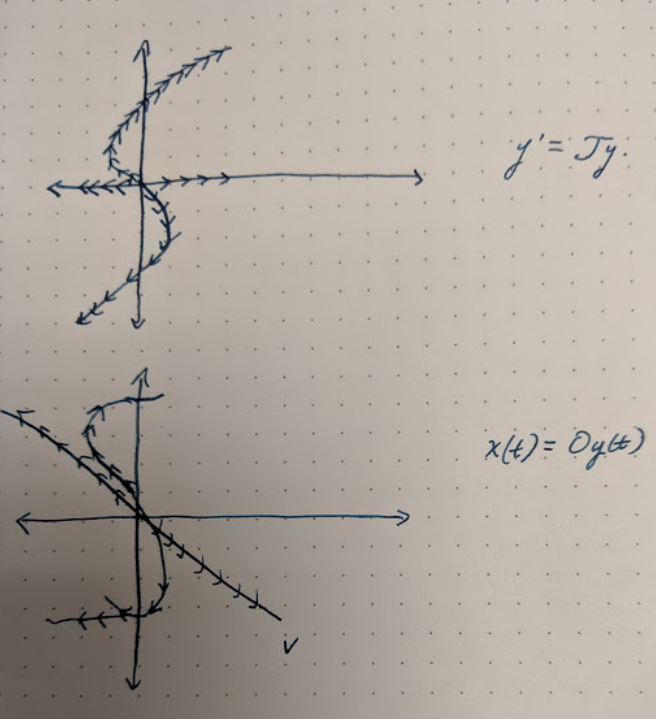 y' = Jy.
x(t) = Oy(t)
v